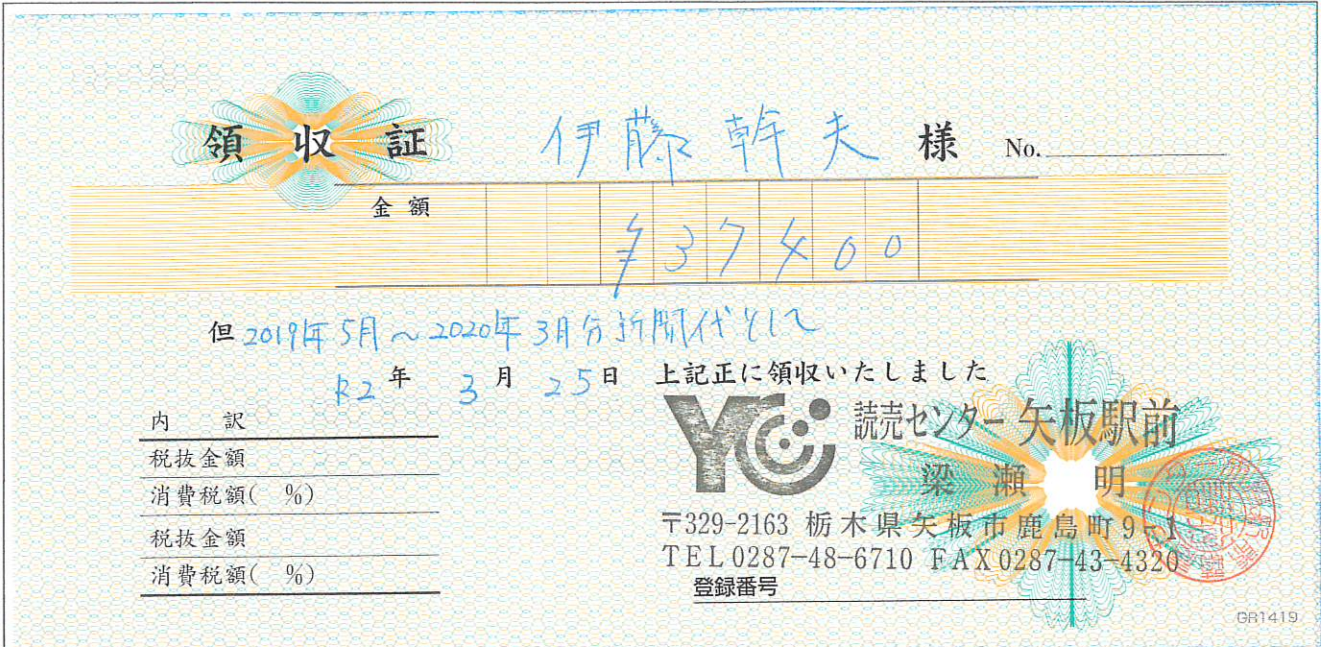 領収証 伊藤幹夫 様 No.
金額 ¥37400
但 2019年5月～2020年3月分新聞代として
R2年 3月 25日 上記正に領収いたしました
内訳
税抜金額
消費税額( %)
税抜金額
消費税額( %)
YC 読売センター 矢板駅前
梁瀬 明
〒329-2163 栃木県矢板市鹿島町9-1
TEL0287-48-6710 FAX0287-43-4320
登録番号
GR1419